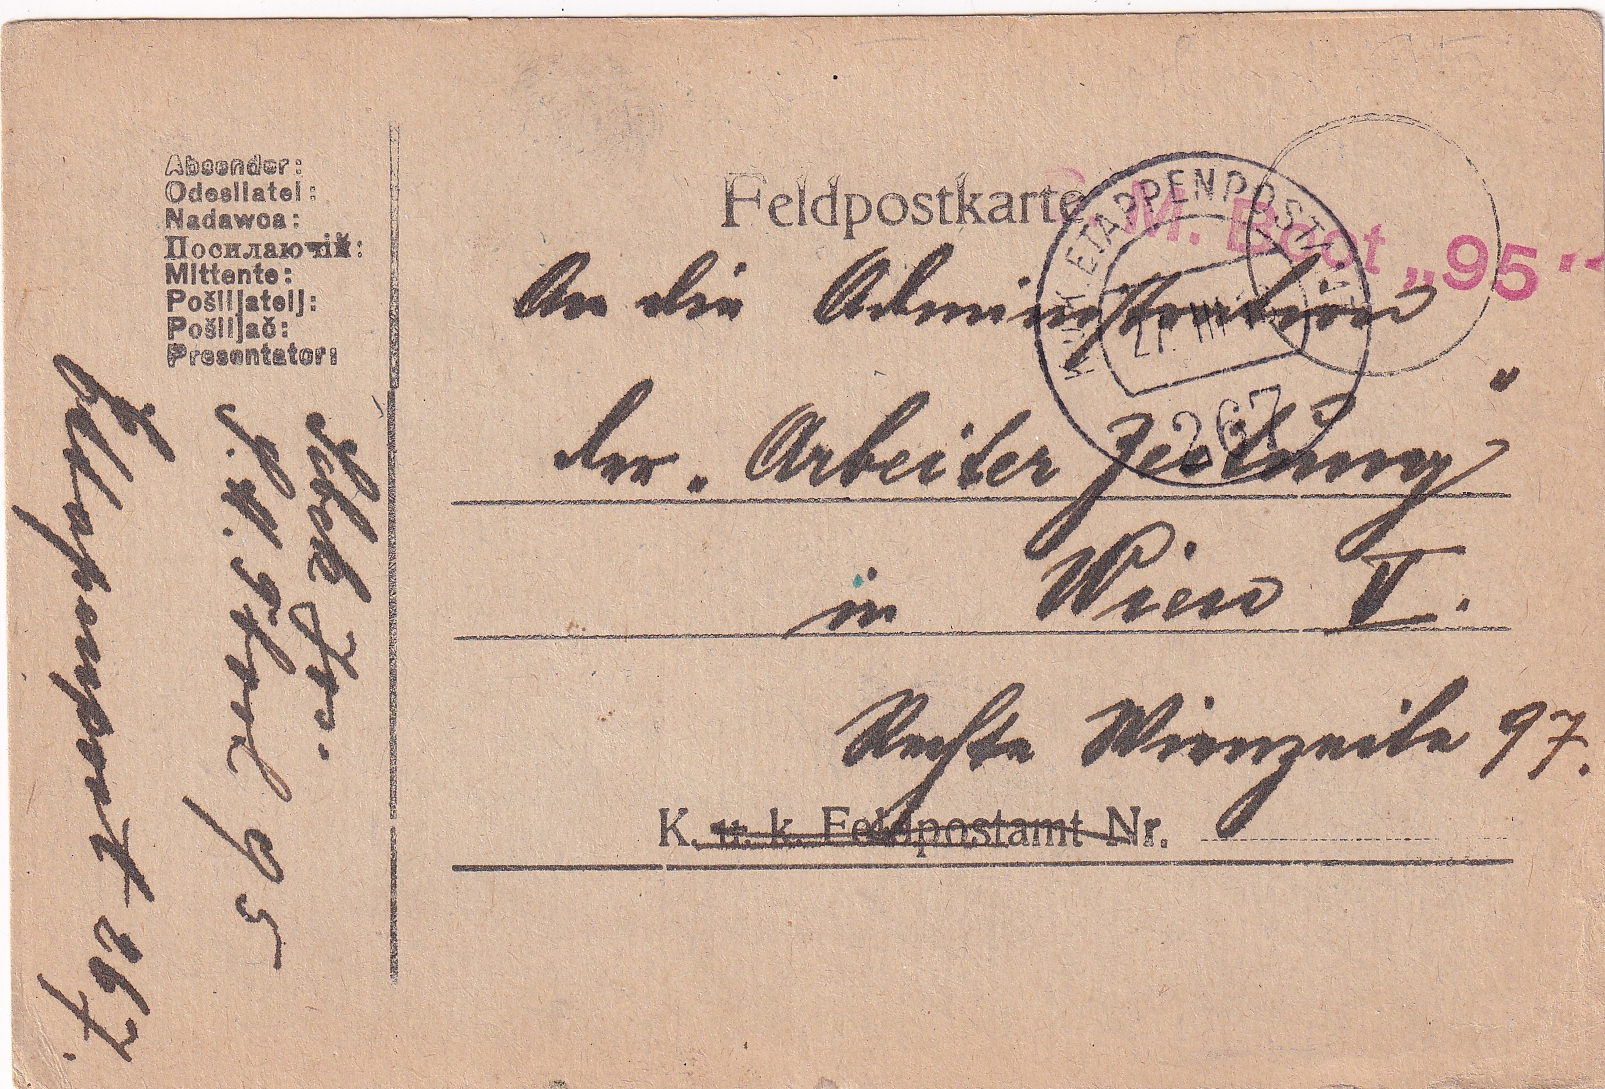 Absender:
Odesílatel:
Nadawca:
Посилаючій:
Mittente:
Pošiljatelj:
Pošiljač:
Presentator:
Feldpostkarte
S. M. Boot „95"
K.u.K. ETAPPENPOSTAMT
27 III
267
An die Administration
der „Arbeiter Zeitung"
in Wien V.
Rechte Wienzeile 97.
K. u. k. Feldpostamt Nr.
95
Etappenpost 267.